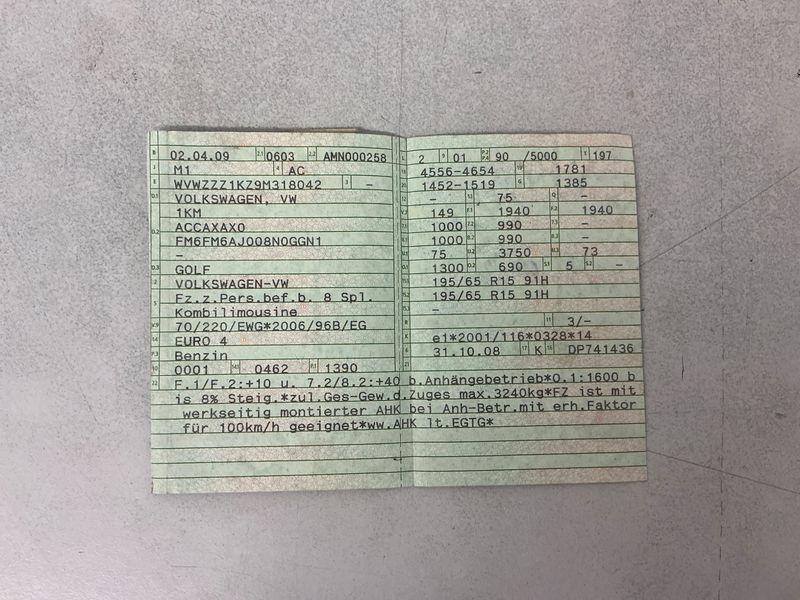 B 02.04.09 2.1 0603 2.2 AMN000258
J M1 4 AC
E WVWZZZ1KZ9M318042 3 –
D.1 VOLKSWAGEN, VW
1KM
D.2 ACCAXAX0
FM6FM6AJ008N0GGN1
–
D.3 GOLF
2 VOLKSWAGEN-VW
5 Fz.z.Pers.bef.b. 8 Spl.
Kombilimousine
V.9 70/220/EWG*2006/96B/EG
14 EURO 4
P.3 Benzin
10 0001 14.1 0462 P.1 1390
L 2 9 01 P.2 P.4 90 /5000 T 197
18 4556-4654 19 1781
20 1452-1519 G 1385
12 – 13 75 Q –
V.7 149 F.1 1940 F.2 1940
7.1 1000 7.2 990 7.3 –
8.1 1000 8.2 990 8.3 –
U.1 75 U.2 3750 U.3 73
O.1 1300 O.2 690 S.1 5 S.2 –
15.1 195/65 R15 91H
15.2 195/65 R15 91H
15.3 –
R 11 3/–
K e1*2001/116*0328*14
6 31.10.08 17 K 16 DP741436
21
22 F.1/F.2:+10 u. 7.2/8.2:+40 b.Anhängebetrieb*0.1:1600 b
is 8% Steig.*zul.Ges-Gew.d.Zuges max.3240kg*FZ ist mit
werkseitig montierter AHK bei Anh-Betr.mit erh.Faktor
für 100km/h geeignet*ww.AHK lt.EGTG*